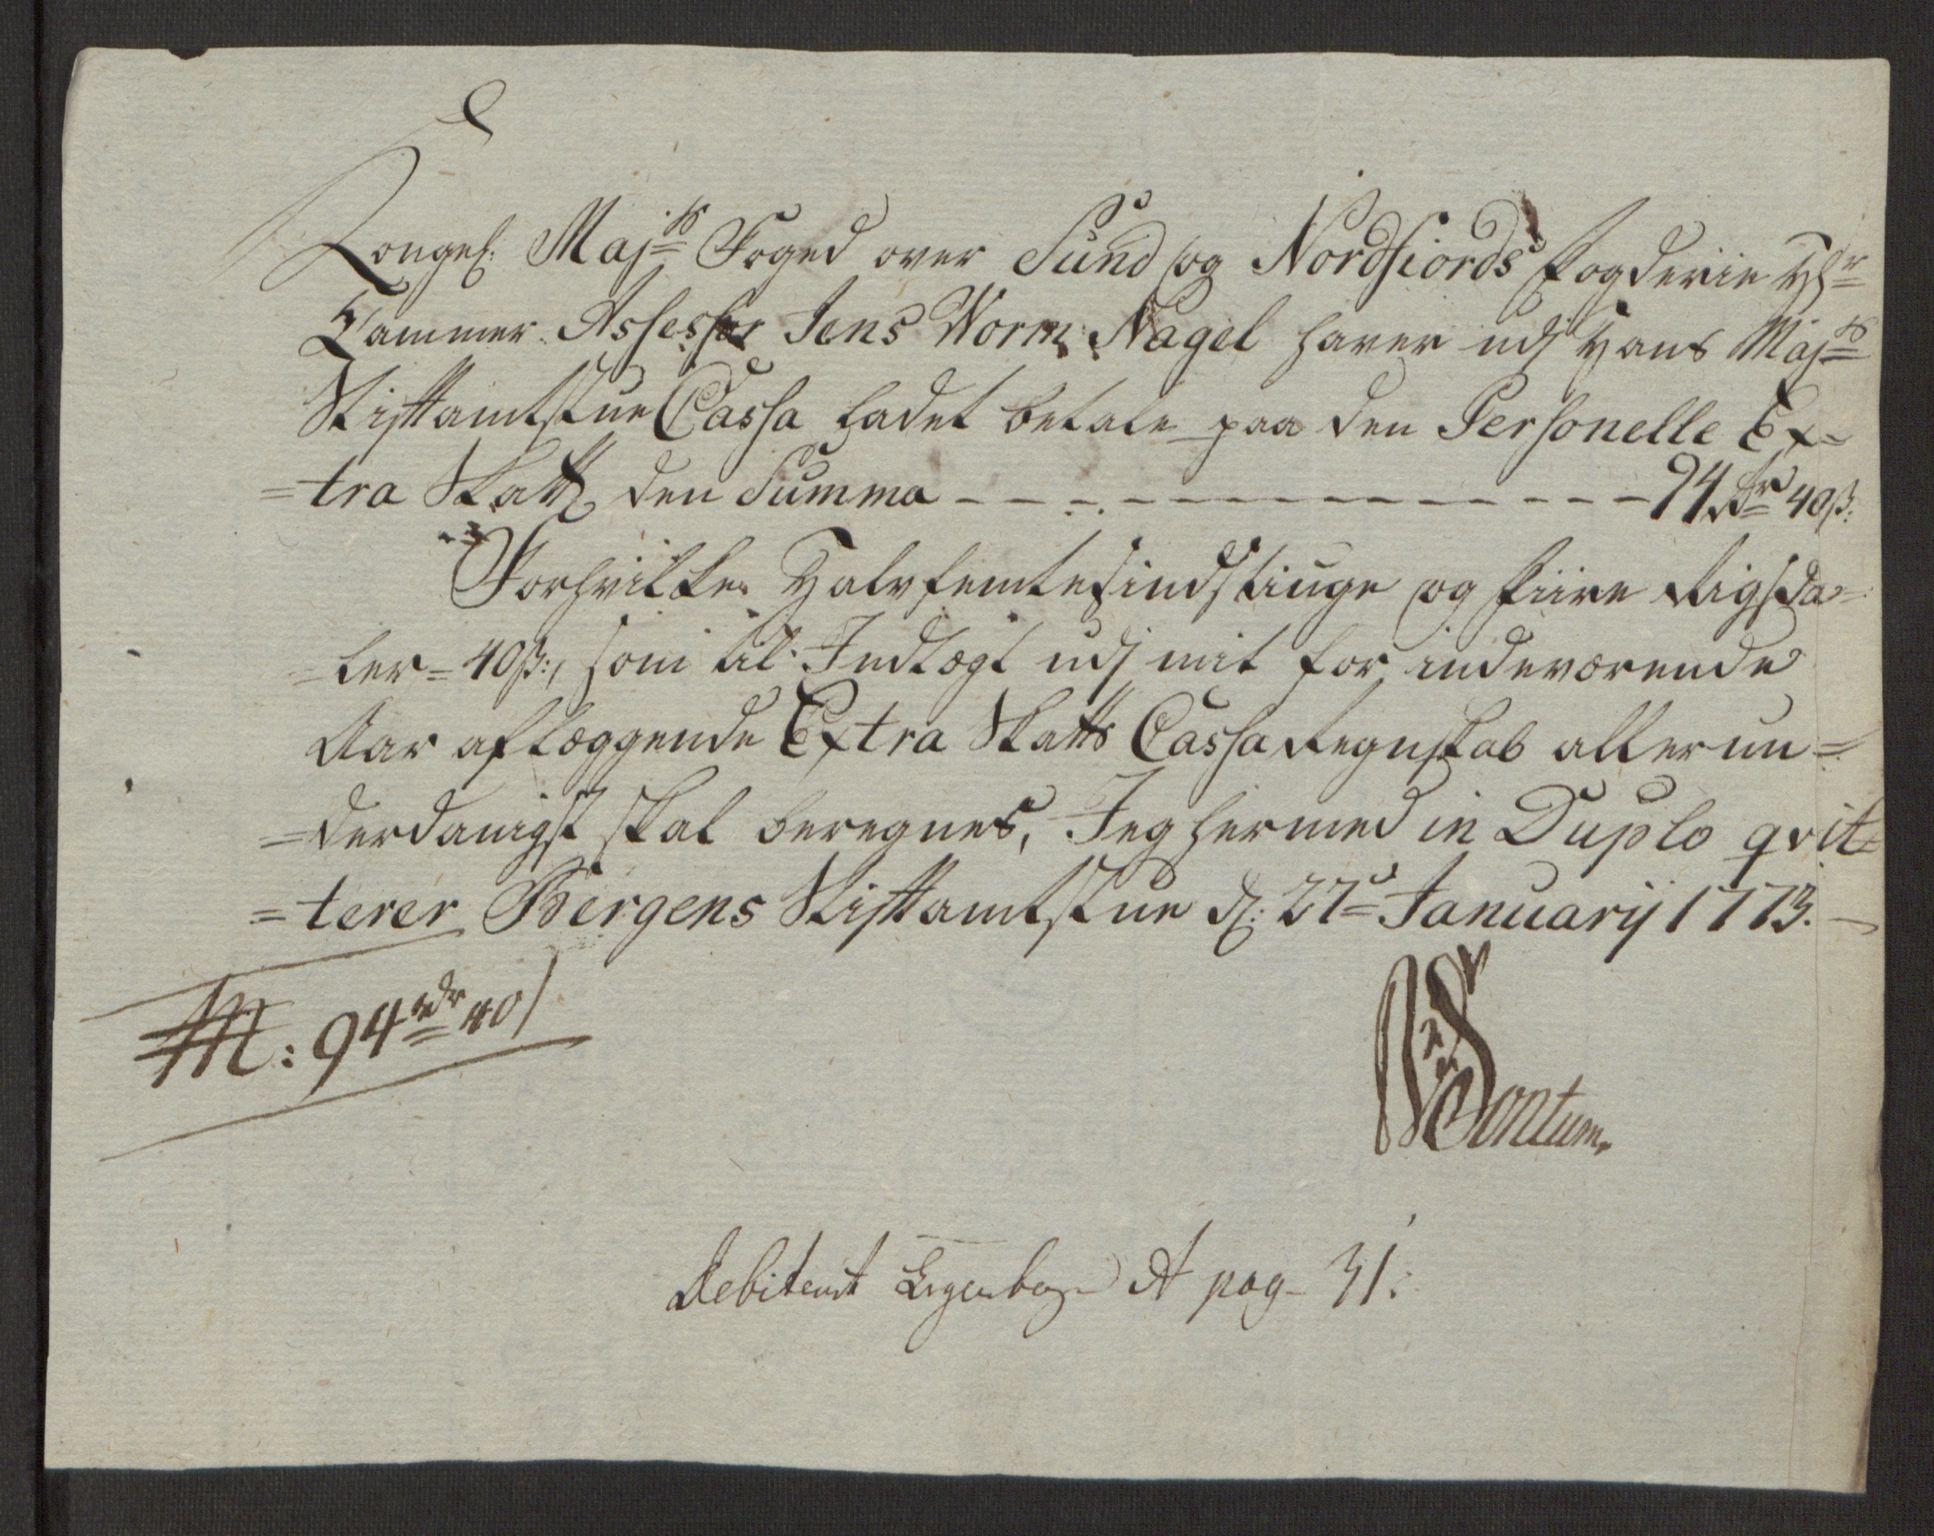 Kongel: Maj:ts Foged over Sund og Nordfiords Fogderie Hr
Cammer Assessor Jens Worm Nagel haver udj Hans Maj:ts
Stiftamtstue Cassa ladet betale paa den Personelle Ex=
=tra Skatt, den Summa - - - - - - - - - - - - 94 rdr 40ß:
Forhvilke Halvfemtesindstiuge og fiire Rigsda=
=ler= 40ß:, som til Indtægt udj mit for indeværende
Aar aflæggende Extra Skatts Cassa Regnskab allerun=
=derdanigst skal beregnes, Jeg hermed in Duplo qvit=
=terer Bergens Stiftamtstue d: 27de Januarij 1773.
94 rdr 40ß
Fontum.
Debiteret A pag 31.